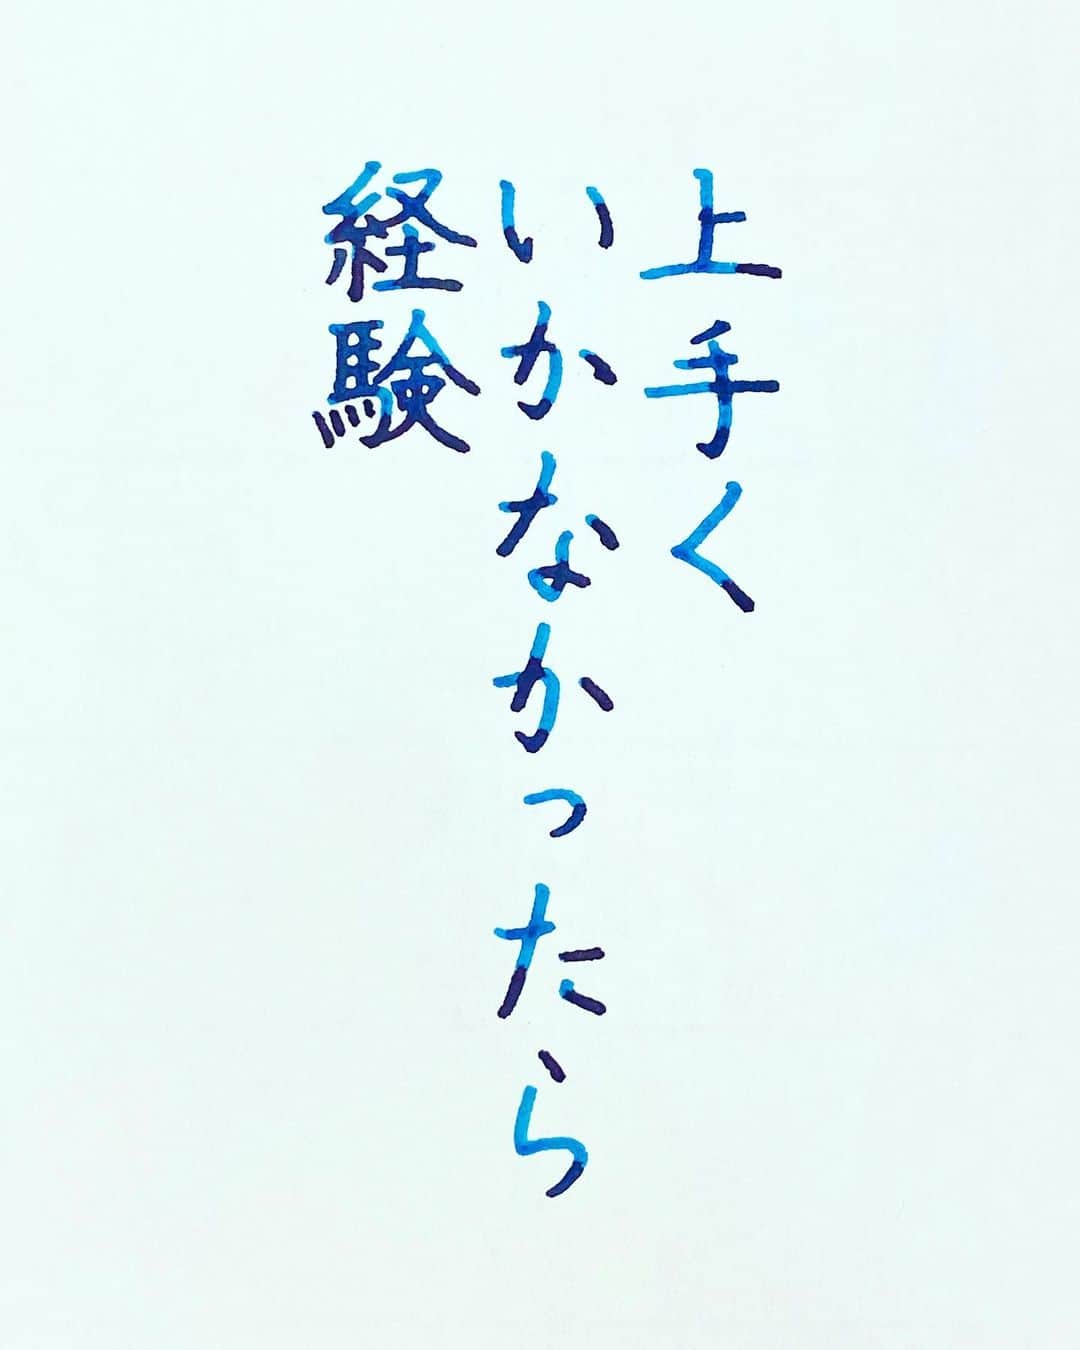 上手く
いかなかったら
経験